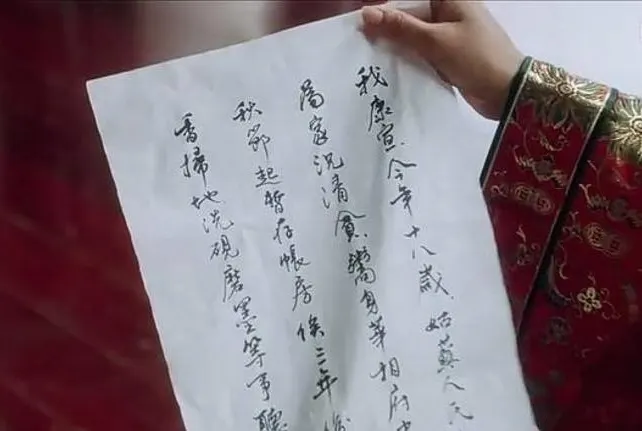 我康宣今年十八歲姑蘇人氏
為家況清貧鬻身華相府
秋節起暫存帳房俟三年後
香掃地洗硯磨墨等事聽